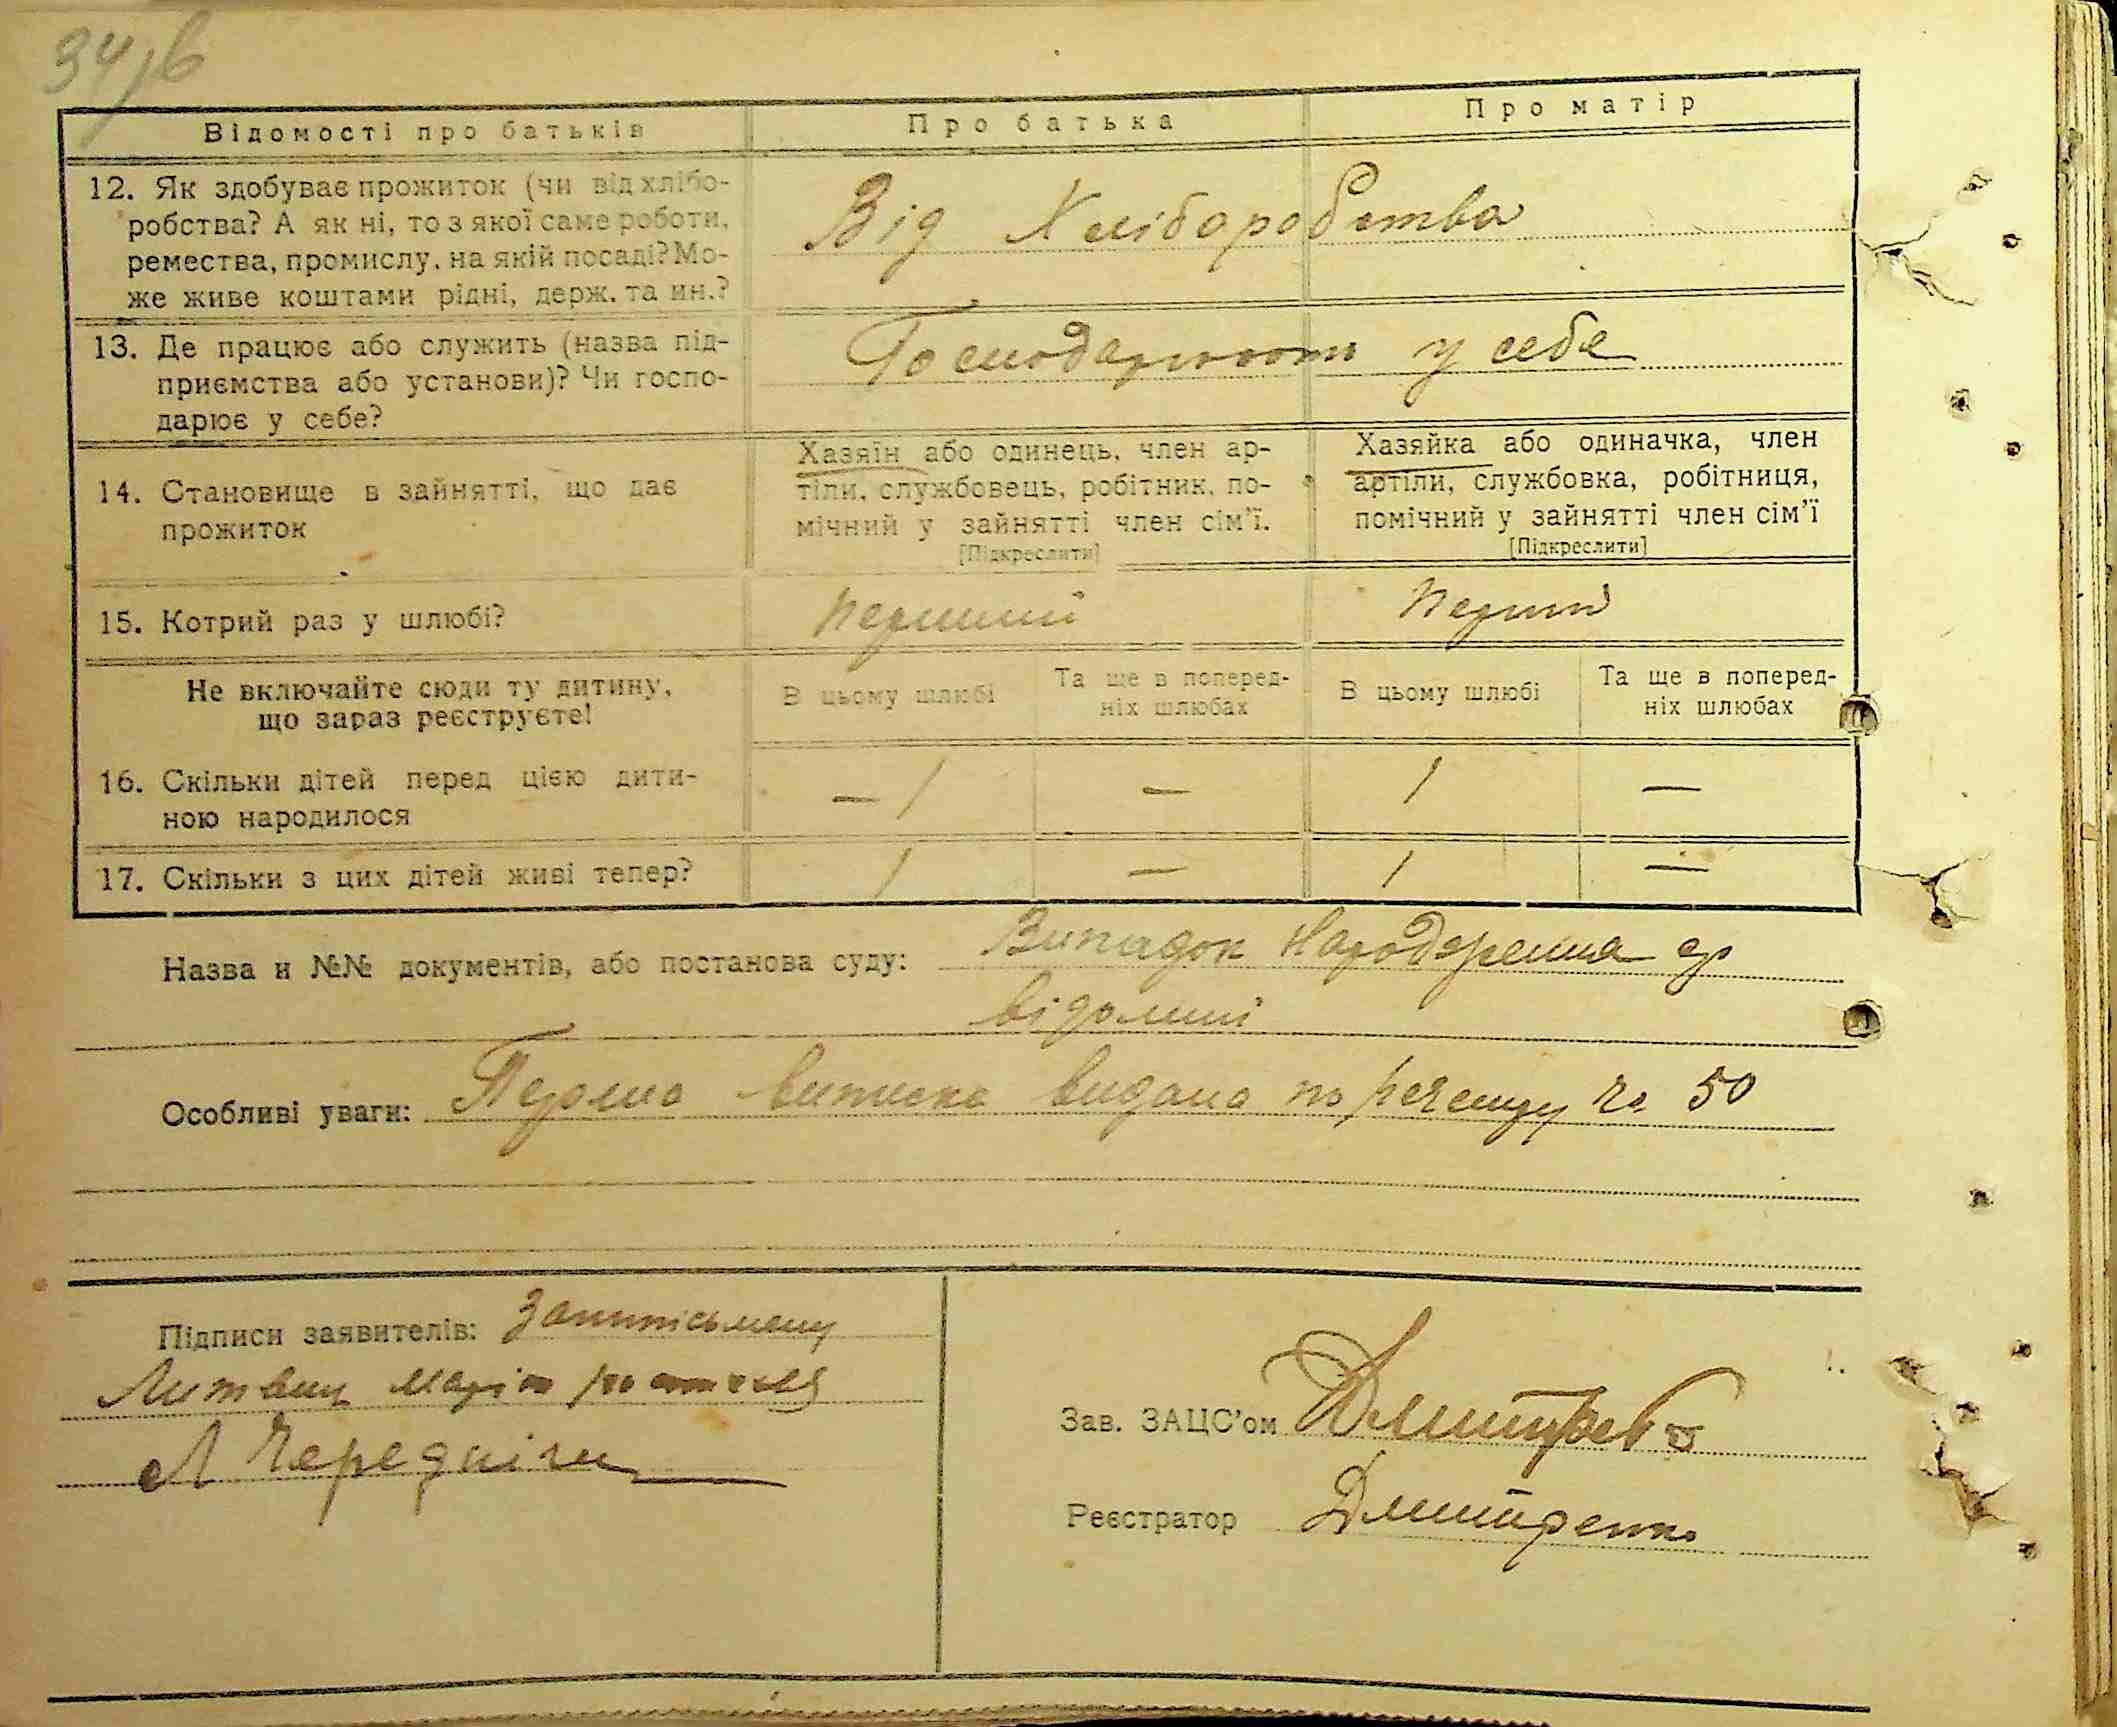 34/в
Відомості про батьків
Про батька
Про матір
12. Як здобуває прожиток (чи від хлібо-
робства? А як ні, то з якої саме роботи,
ремества, промислу, на якій посаді? Мо-
же живе коштами рідні, держ. та ин.?
Від Хліборобства
13. Де працює або служить (назва під-
приємства або установи)? Чи госпо-
дарює у себе?
Господарюють у себе
14. Становище в зайнятті, що дає
прожиток
Хазяїн або одинець, член ар-
тіли, службовець, робітник, по-
мічний у зайнятті член сім’ї.
[Підкреслити]
Хазяйка або одиначка, член
артіли, службовка, робітниця,
помічний у зайнятті член сім’ї
[Підкреслити]
15. Котрий раз у шлюбі?
перший
перший
Не включайте сюди ту дитину,
що зараз реєструєте!
В цьому шлюбі
Та ще в поперед-
ніх шлюбах
В цьому шлюбі
Та ще в поперед-
ніх шлюбах
16. Скільки дітей перед цією дити-
ною народилося
— 1
—
1
—
17. Скільки з цих дітей живі тепер?
1
—
1
—
Назва и №№ документів, або постанова суду: Випадок народження
відомий
Особливі уваги: Перша виписка видана по реєстру за 50
Підписи заявителів:
Литвин Марію
А Чередніч
Зав. ЗАЦС’ом Дмитренко
Реєстратор Дмитренко